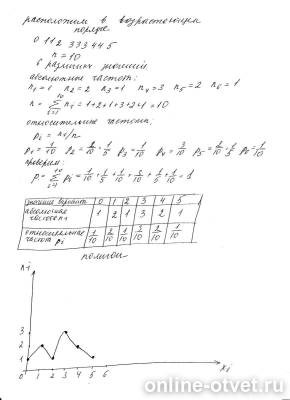 расположим в возрастающем
порядке
0 1 1 2 3 3 3 4 4 5
n = 10
6 различн. значений
абсолютные частоты:
n₁ = 1 n₂ = 2 n₃ = 1 n₄ = 3 n₅ = 2 n₆ = 1
n = Σ nᵢ = 1+2+1+3+2+1 = 10
относительные частоты:
pᵢ = nᵢ/n
p₁ = 1/10 p₂ = 2/10 = 1/5 p₃ = 1/10 p₄ = 3/10 p₅ = 2/10 = 1/5 p₆ = 1/10
проверим:
значение варианты 0 1 2 3 4 5
абсолютная
частота nᵢ 1 2 1 3 2 1
относительная
частота pᵢ 1/10 2/10 1/10 3/10 2/10 1/10
полигон
nᵢ
3
2
1
0 1 2 3 4 5 6 xᵢ
online-otvet.ru